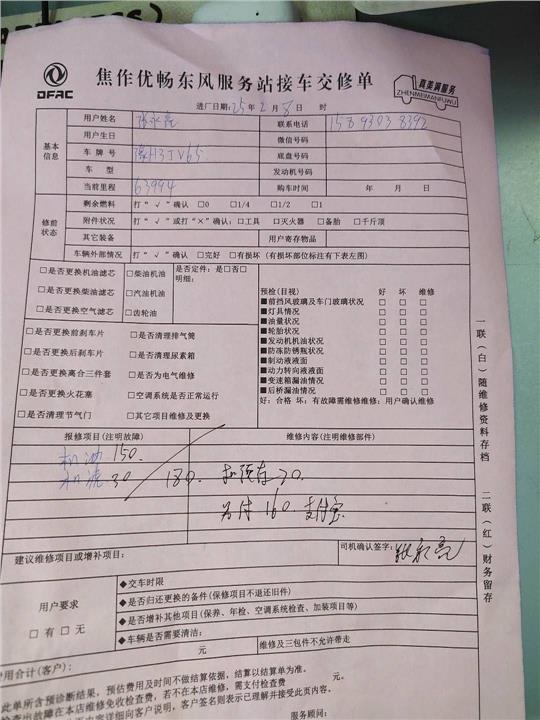 DFAC
焦作优畅东风服务站接车交修单
真美满服务
ZHENMEIWANFUWU
进厂日期:25年2月8日 时
基本信息
用户姓名
联系电话 15893038392
用户生日
微信号码
车牌号 豫H3JV65
底盘号码
车型
发动机号码
当前里程 63994
购车时间 年 月 日
修前状态
剩余燃料 打“√”确认 □0 □1/4 □1/2 □1
附件状况 打“√”或打“×”确认:□工具 □灭火器 □备胎 □千斤顶
其它装备
用户寄存物品
车辆外部情况 打“√”确认 □完好 □有损坏（有损坏部位标注有下表左图）
□是否更换机油滤芯 □柴油机油 是否定件:是□否□
明细:
□是否更换柴油滤芯 □汽油机油
□是否更换空气滤芯 □齿轮油
□是否更换前刹车片 □是否清理排气筒
□是否更换后刹车片 □是否清理尿素箱
□是否更换离合三件套 □是否为电气维修
□是否更换火花塞 □空调系统是否正常运行
□是否清理节气门 □其它项目维修及更换
预检(目视) 好 坏 维修
■前挡风玻璃及车门玻璃状况 □ □ □
■灯具情况 □ □ □
■油量状况 □ □ □
■轮胎状况 □ □ □
■发动机机油状况 □ □ □
■防冻防锈瓶状况 □ □ □
■制动液液面 □ □ □
■动力转向液液面 □ □ □
■变速箱漏油情况 □ □ □
■后桥漏油情况 □ □ □
好:合格 坏:有故障需维修维修:用户确认维修
报修项目(注明故障)
维修内容(注明维修部件)
机油 150.
机滤 30 180. 扣预存20.
另付160.支付宝
建议维修项目或增补项目:
司机确认签字:
用户要求
□有□无
◆交车时限
◆是否归还更换的备件(保修项目不退还旧件)
◆是否增补其他项目(保养、年检、空调系统检查、加装项目等)
◆车辆是否需要清洁:
元
维修及三包件不允许带走
费用合计(客户):
元。
此单所含预诊断结果，预估费用及时间不做结算依据，结算以结算单为准。
检查出故障在本店维修免收检查费，若不在本店维修，需支付检查费
内容详细向客户说明，客户签名则表示已理解并接受此页内容。
服务顾问:
一联（白）随维修资料存档
二联（红）财务留存